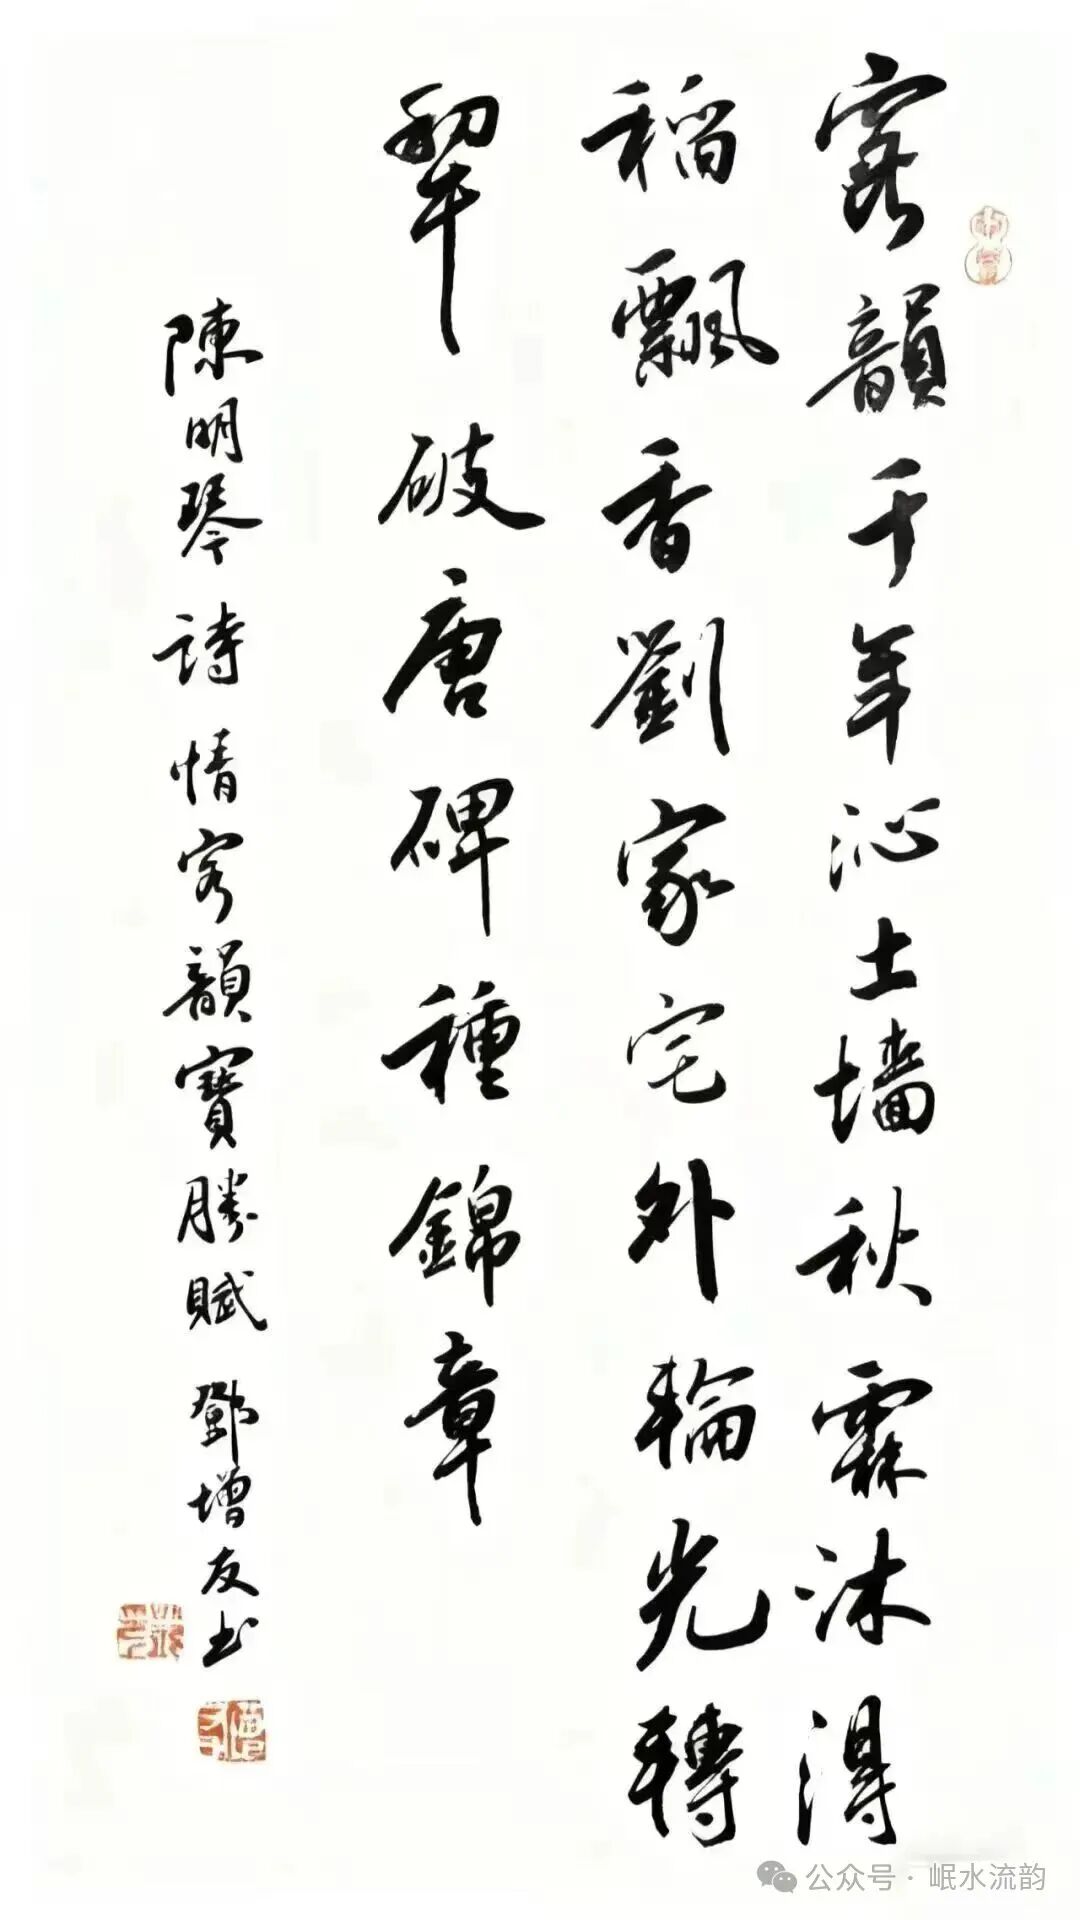 客韻千年沁土墻秋霖沐得
稻飄香劉家宅外輪光轉
犂破唐碑種錦章
陳明琴詩情客韻寶勝賦 鄧增友书
公众号·岷水流韵